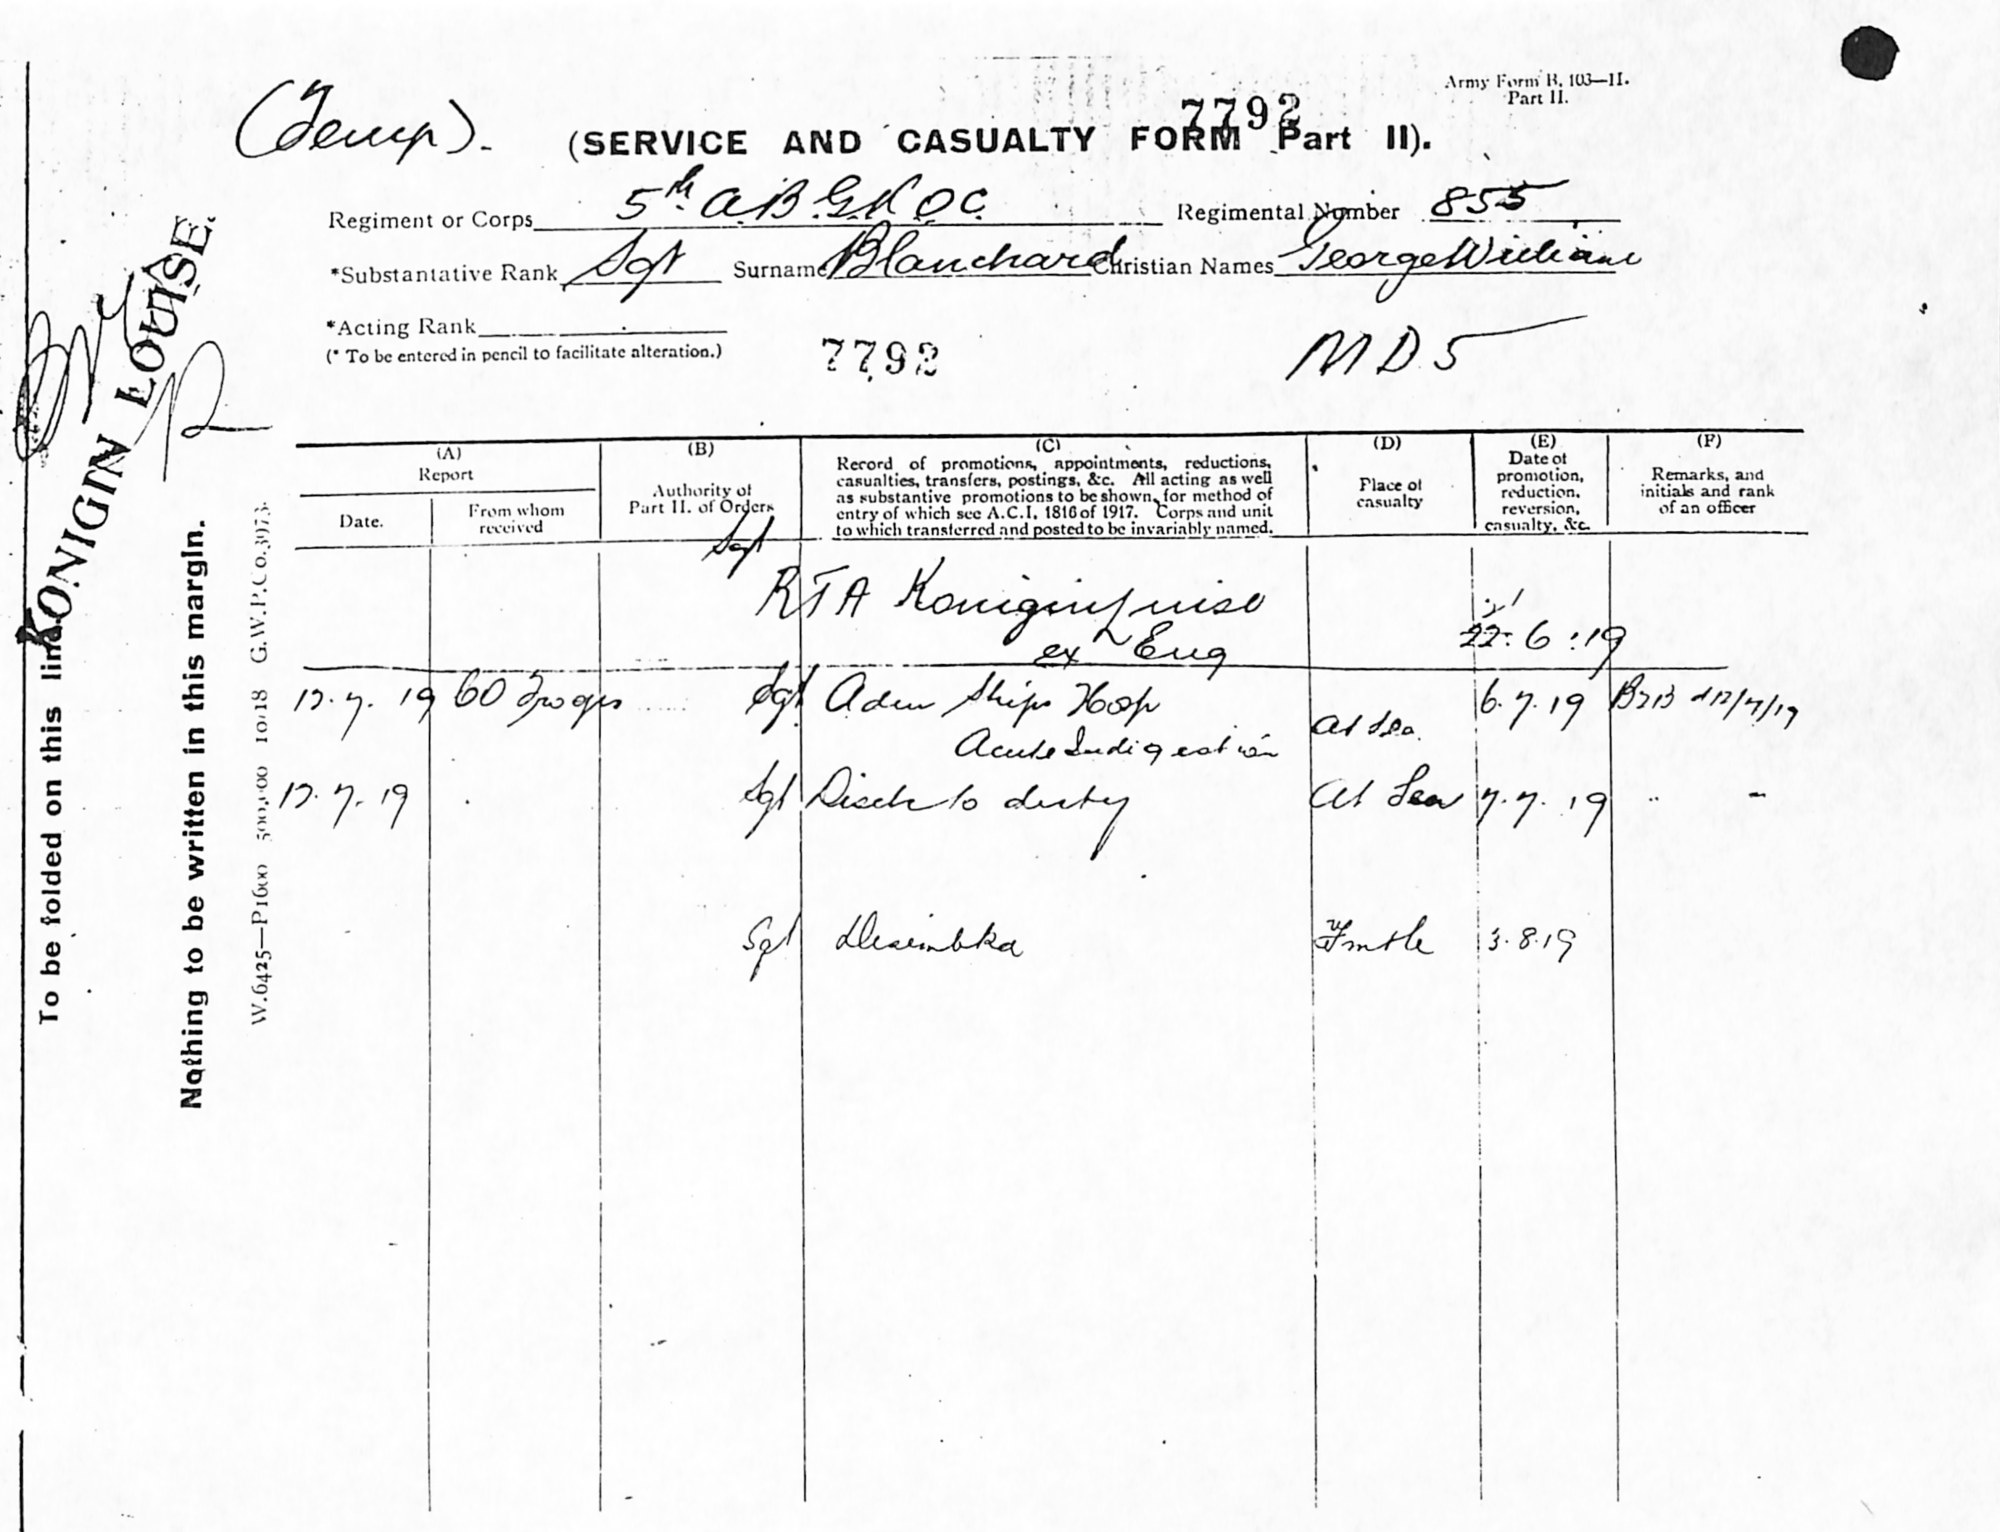 Army Form B. 103—II.
Part II.
(Temp).
7792
(SERVICE AND CASUALTY FORM Part II).
Regiment or Corps 5th A.B.G.R.O.C. Regimental Number 855
*Substantative Rank Sgt Surname Blanchard Christian Names George William
*Acting Rank
(* To be entered in pencil to facilitate alteration.)
7792
M D 5
KONIGIN LOUISE.
To be folded on this line.
Nothing to be written in this margin.
W.6425—P1600 500,000 10/18 G.W.P.Co.3973.
(A)
Report
Date.
From whom received
(B)
Authority of
Part II. of Orders
(C)
Record of promotions, appointments, reductions,
casualties, transfers, postings, &c. All acting as well
as substantive promotions to be shown, for method of
entry of which see A.C.I. 1816 of 1917. Corps and unit
to which transferred and posted to be invariably named.
(D)
Place of
casualty
(E)
Date of
promotion,
reduction,
reversion,
casualty, &c.
(F)
Remarks, and
initials and rank
of an officer
Sgt
RTA Konigin Luise
ex Eng 22. 6 . 19
12. 7. 19 OO Troops Sgt Adm Ships Hosp 6. 7. 19
Acute Indigestion At Sea
12. 7. 19 Sgt Disch to duty At Sea 7. 7. 19 " "
Sgt Disembkd Fmtle 3. 8. 19